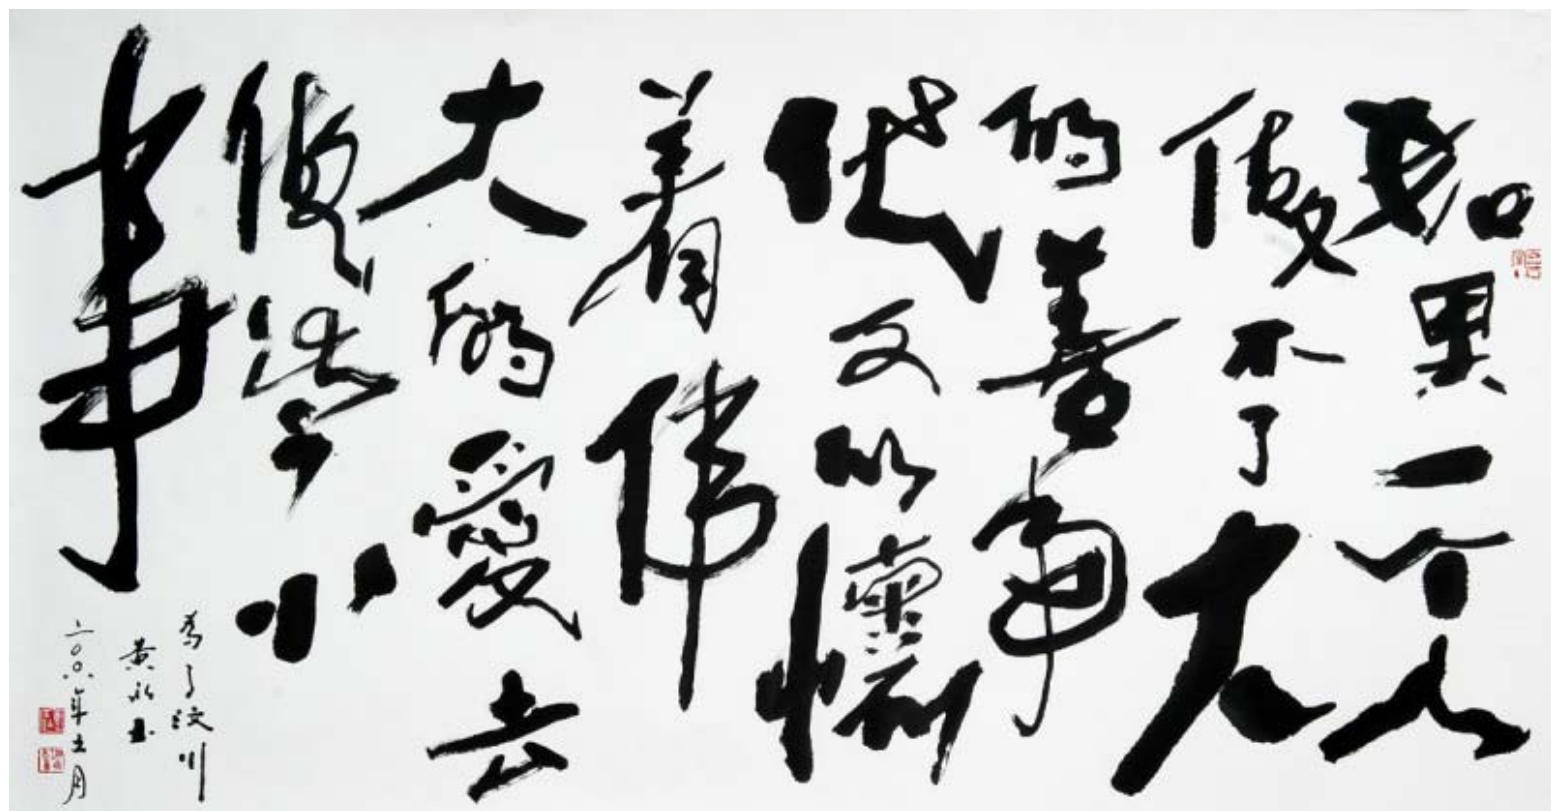 如果一个人
做不了大
的善事
他可以懷
着伟
大的愛去
做些小
事
為了汶川
黄
二〇〇八年五月